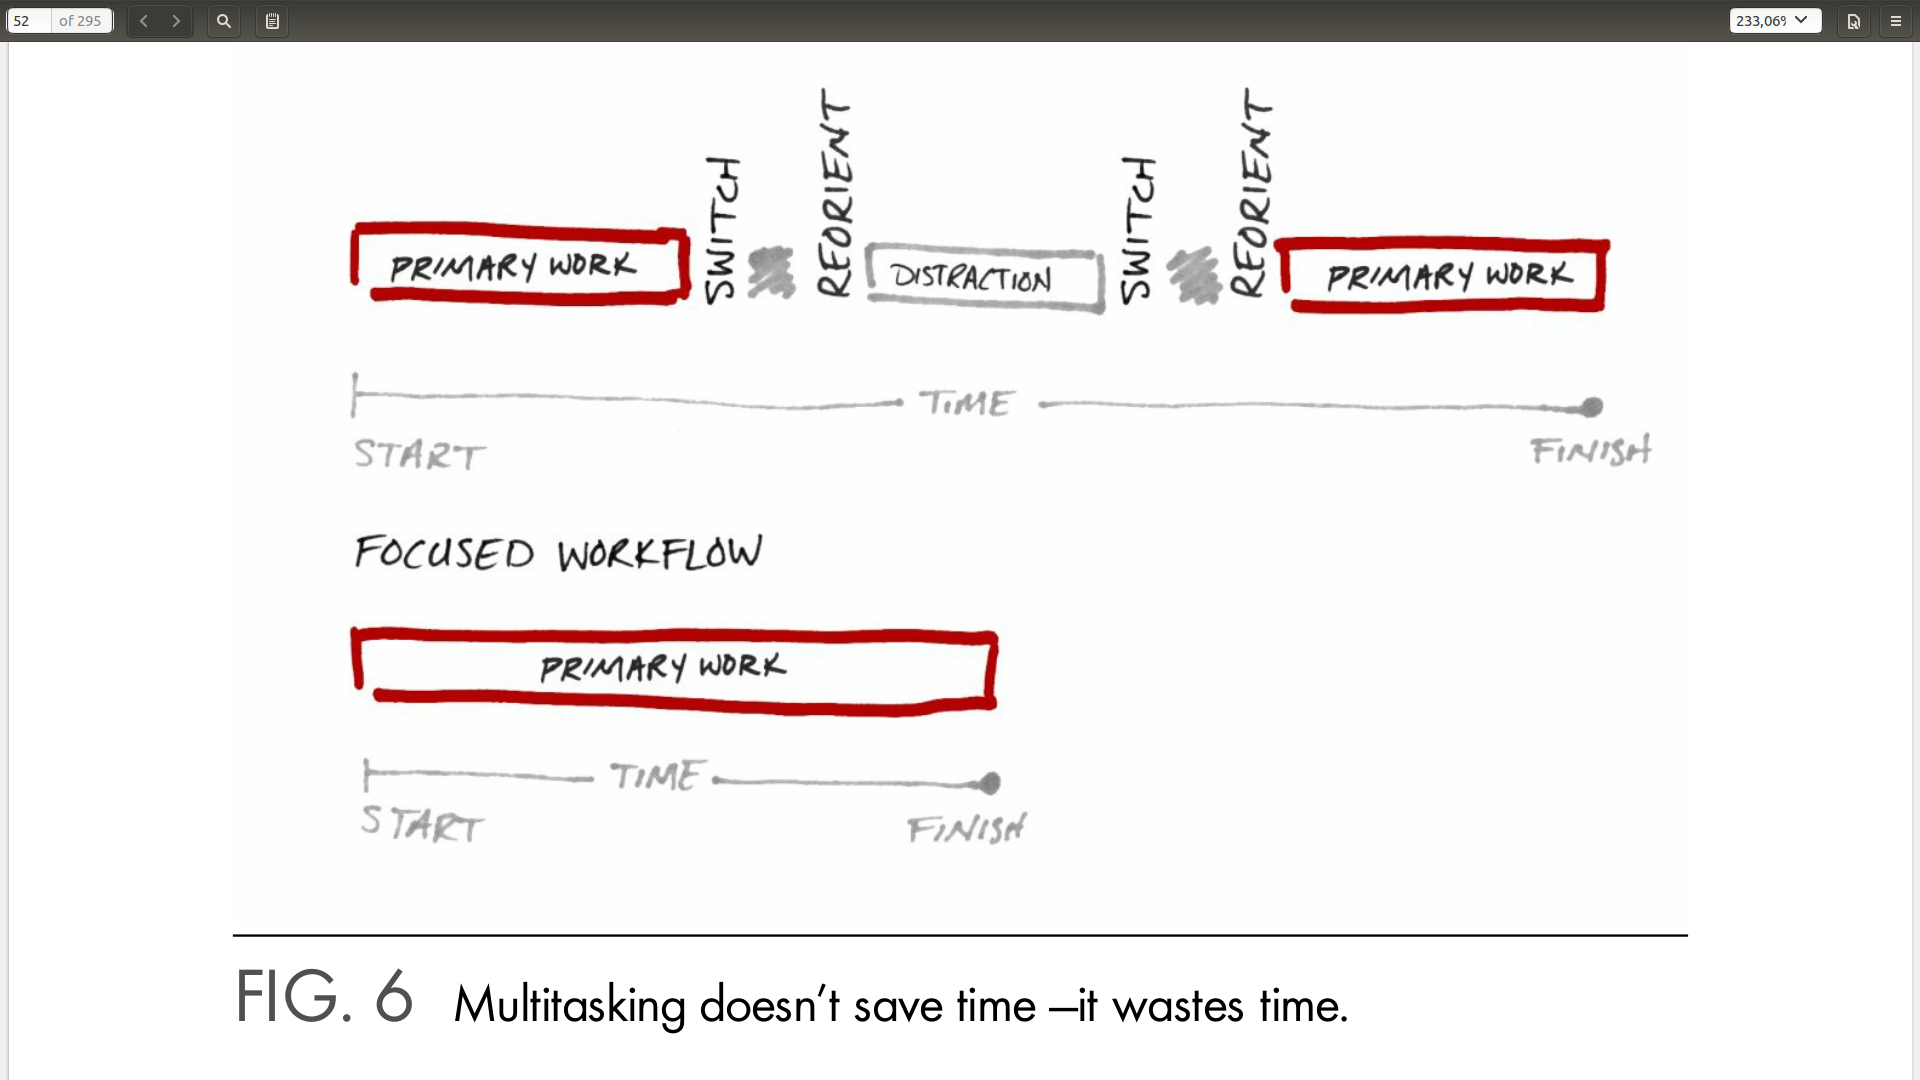 52 of 295
233,06%
PRIMARY WORK SWITCH REORIENT DISTRACTION SWITCH REORIENT PRIMARY WORK
TIME
START FINISH
FOCUSED WORKFLOW
PRIMARY WORK
TIME
START FINISH
FIG. 6 Multitasking doesn't save time —it wastes time.